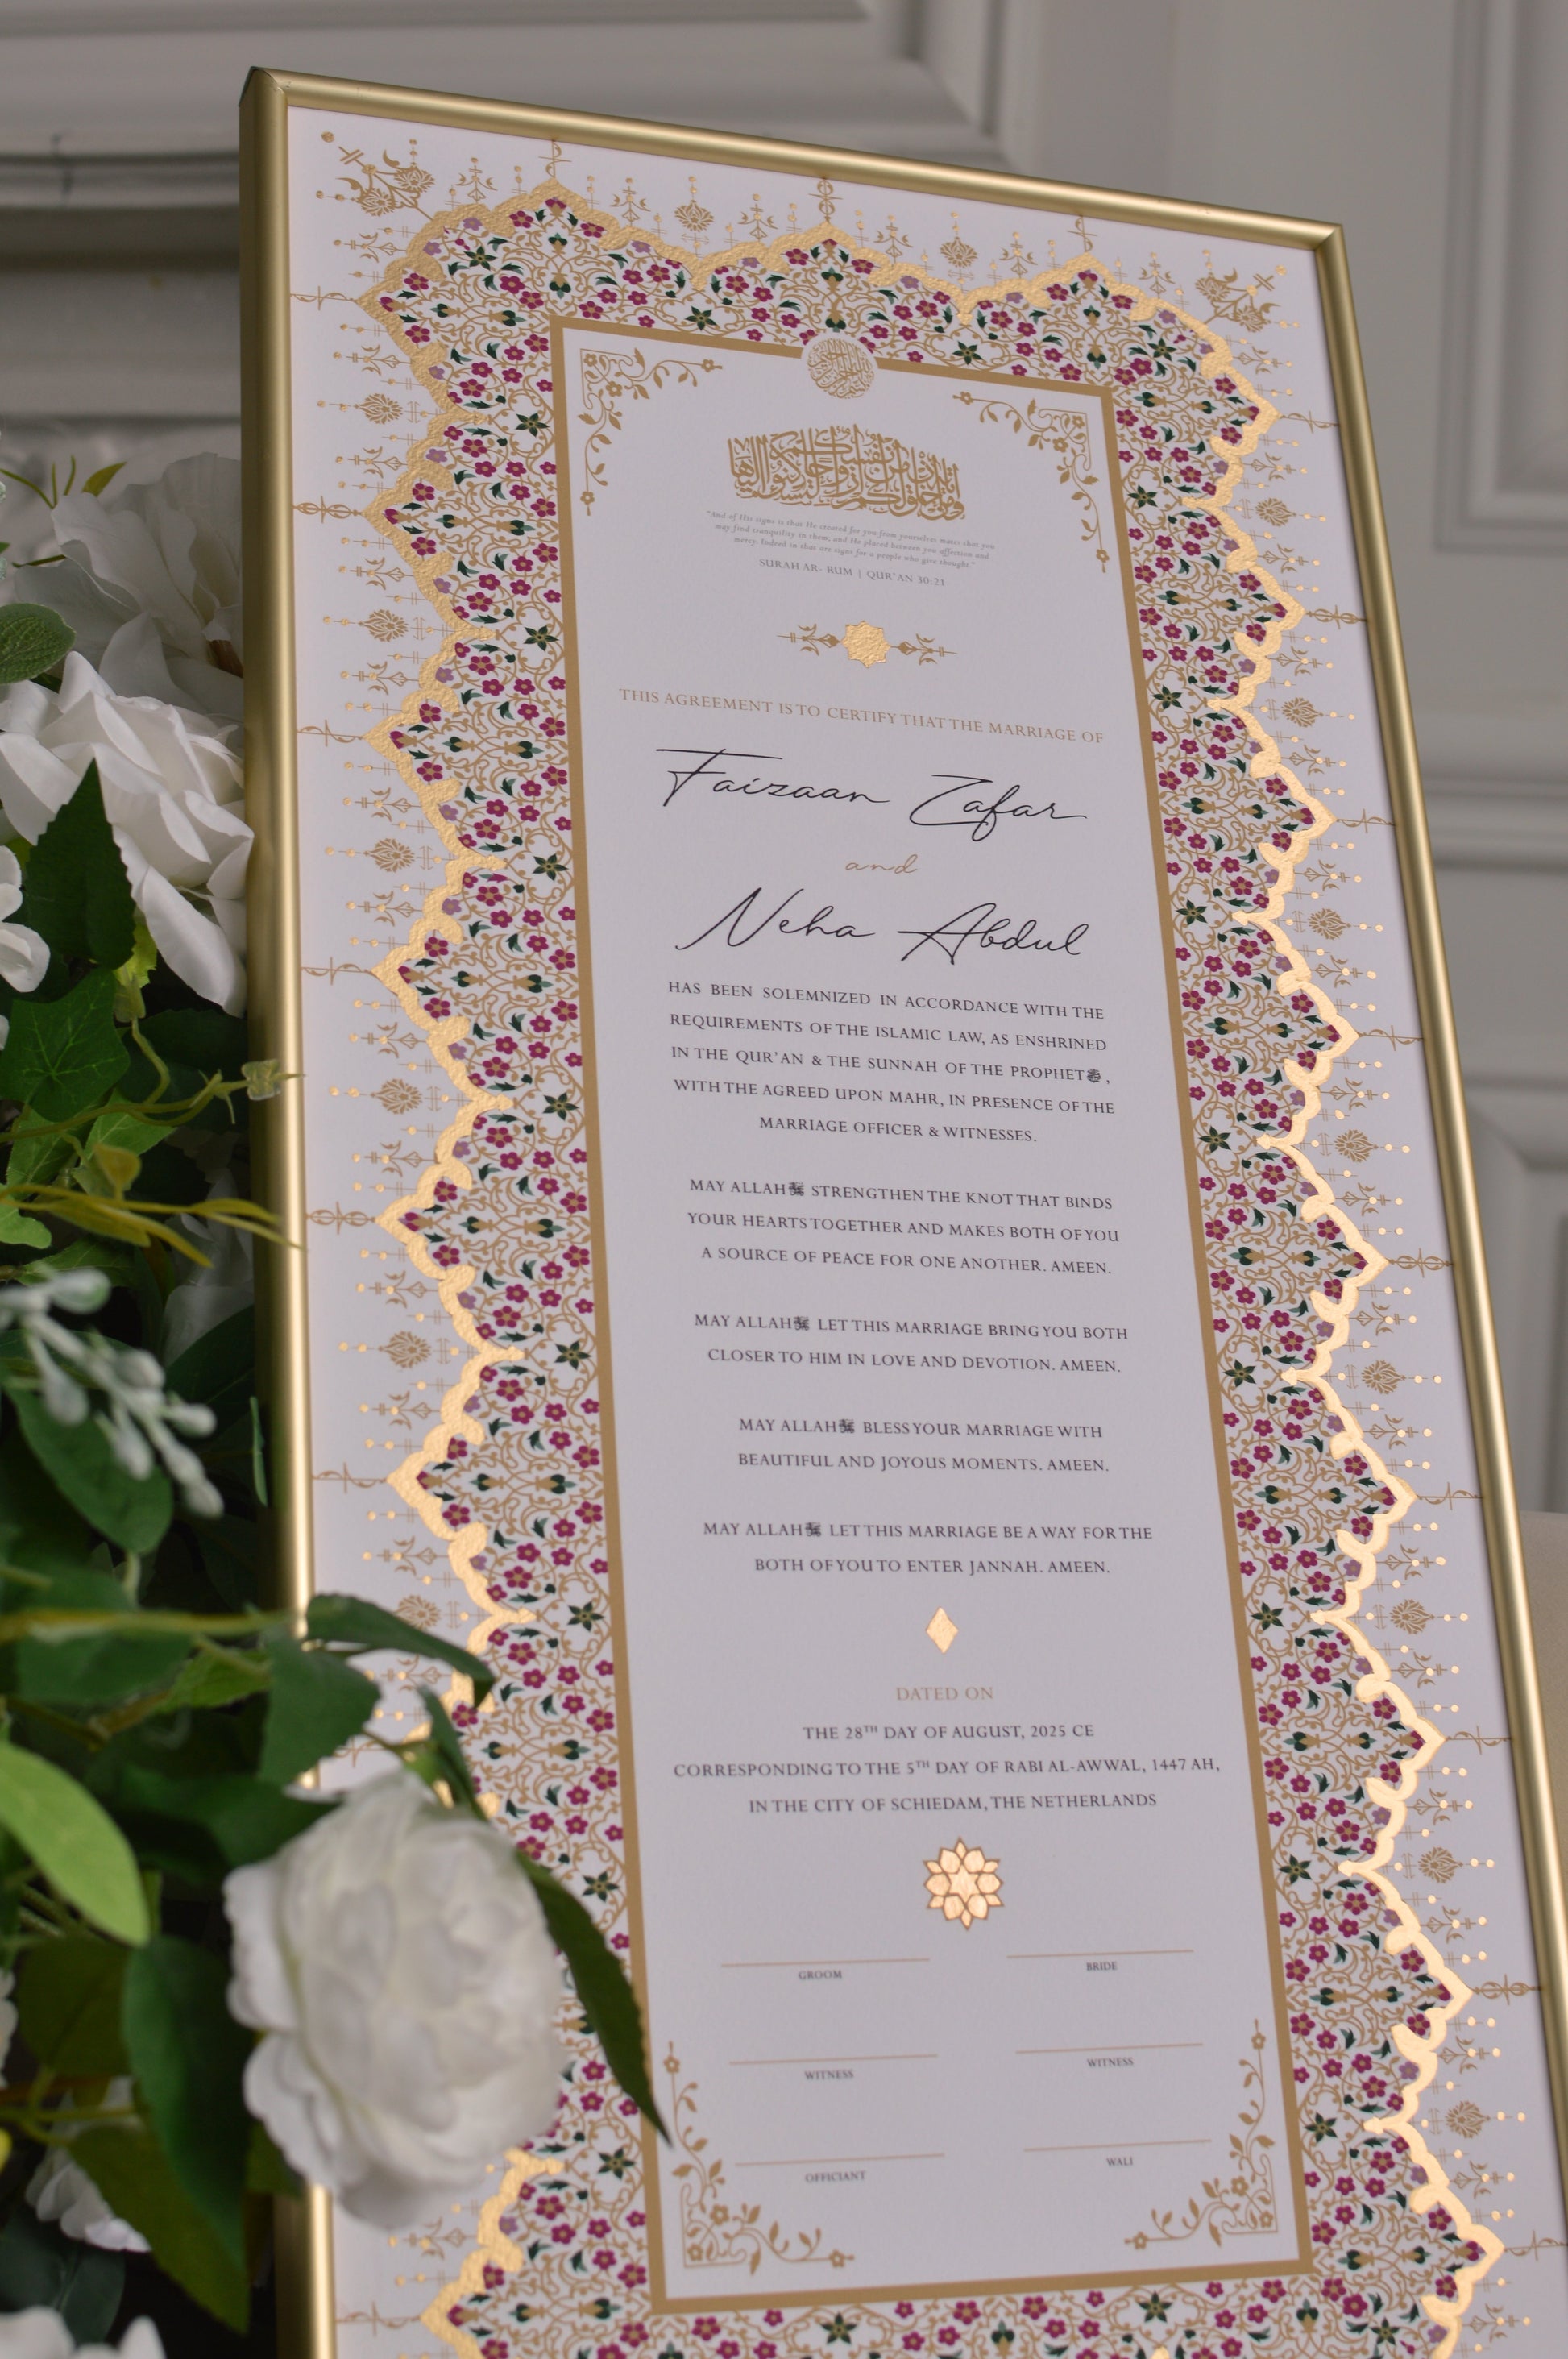 وَمِنْ آيَاتِهِ أَنْ خَلَقَ لَكُم مِّنْ أَنفُسِكُمْ أَزْوَاجًا لِّتَسْكُنُوا إِلَيْهَا
"And of His signs is that He created for you from yourselves mates that you
may find tranquility in them; and He placed between you affection and
mercy. Indeed in that are signs for a people who give thought."
SURAH AR- RUM | QUR'AN 30:21
THIS AGREEMENT IS TO CERTIFY THAT THE MARRIAGE OF
Faizaan Zafar
and
Neha Abdul
HAS BEEN SOLEMNIZED IN ACCORDANCE WITH THE
REQUIREMENTS OF THE ISLAMIC LAW, AS ENSHRINED
IN THE QUR'AN & THE SUNNAH OF THE PROPHETﷺ,
WITH THE AGREED UPON MAHR, IN PRESENCE OF THE
MARRIAGE OFFICER & WITNESSES.
MAY ALLAH STRENGTHEN THE KNOT THAT BINDS
YOUR HEARTS TOGETHER AND MAKES BOTH OF YOU
A SOURCE OF PEACE FOR ONE ANOTHER. AMEEN.
MAY ALLAH LET THIS MARRIAGE BRING YOU BOTH
CLOSER TO HIM IN LOVE AND DEVOTION. AMEEN.
MAY ALLAH BLESS YOUR MARRIAGE WITH
BEAUTIFUL AND JOYOUS MOMENTS. AMEEN.
MAY ALLAH LET THIS MARRIAGE BE A WAY FOR THE
BOTH OF YOU TO ENTER JANNAH. AMEEN.
DATED ON
THE 28TH DAY OF AUGUST, 2025 CE
CORRESPONDING TO THE 5TH DAY OF RABI AL-AWWAL, 1447 AH,
IN THE CITY OF SCHIEDAM, THE NETHERLANDS
GROOM BRIDE
WITNESS WITNESS
OFFICIANT WALI